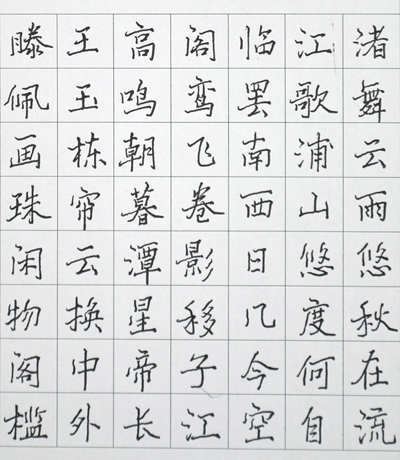 滕王高阁临江渚
佩玉鸣鸾罢歌舞
画栋朝飞南浦云
珠帘暮卷西山雨
闲云潭影日悠悠
物换星移几度秋
阁中帝子今何在
槛外长江空自流